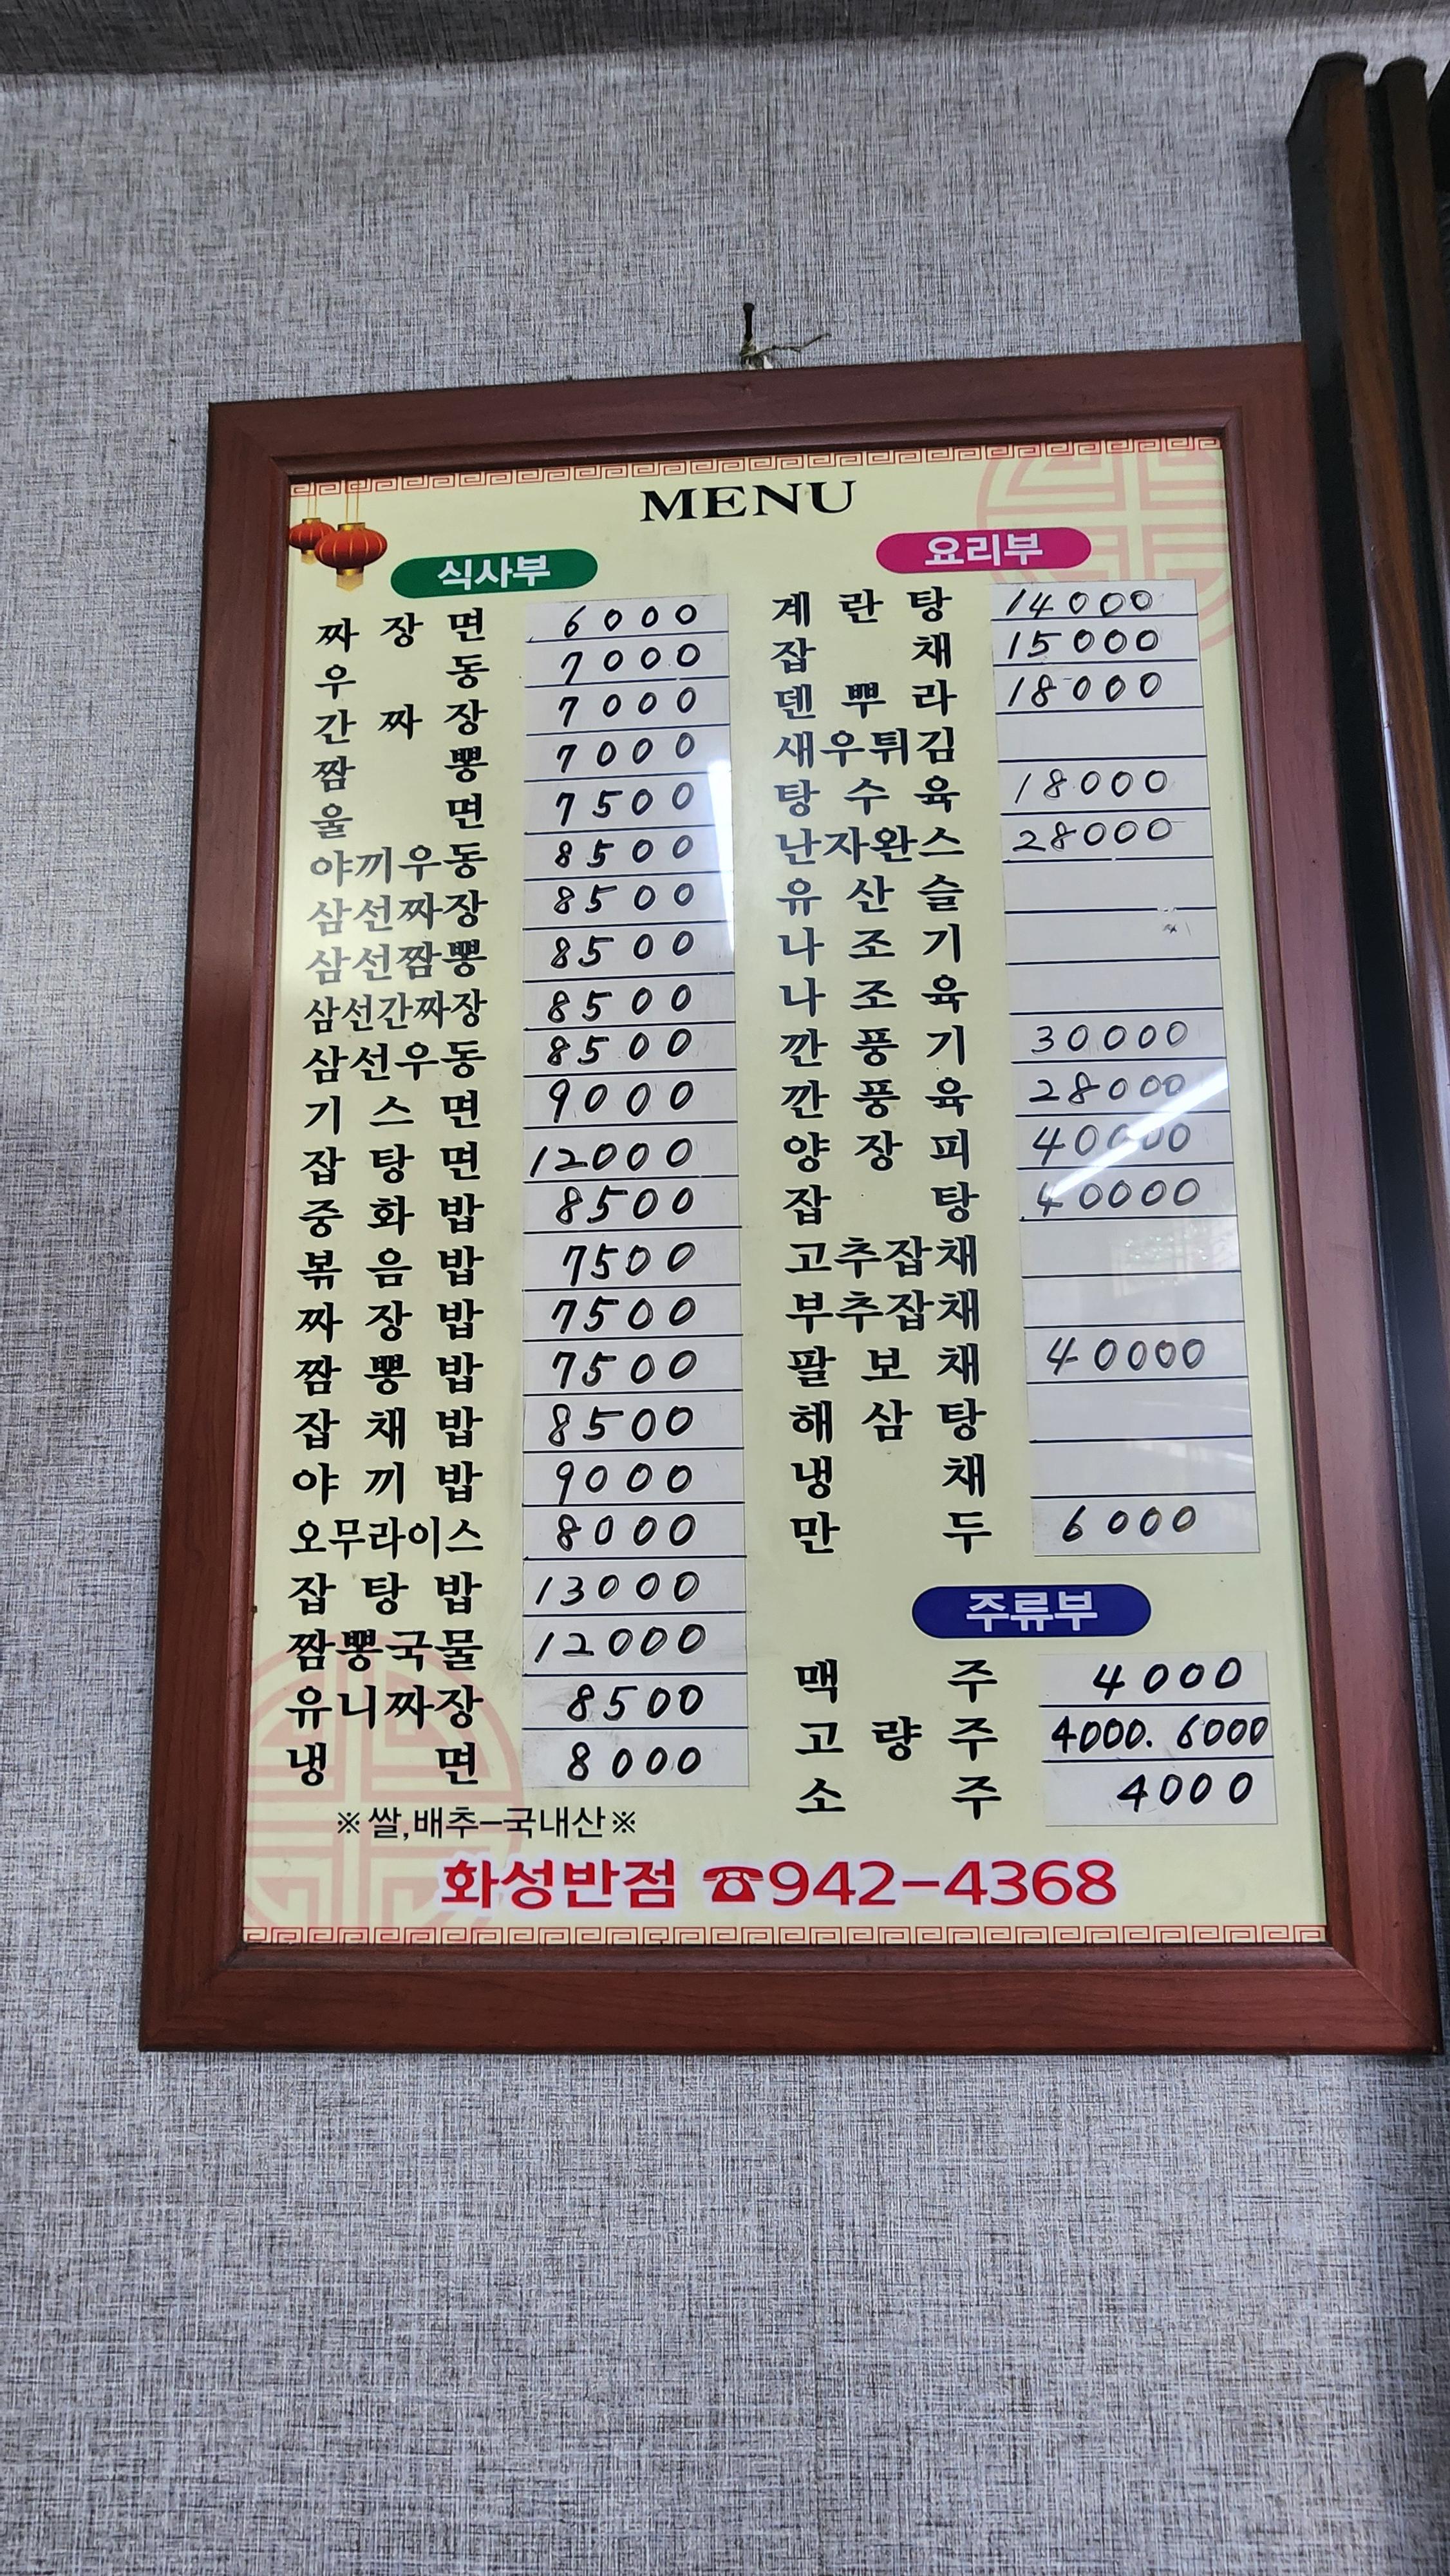 MENU
식사부
짜장면 6000
우동 7000
간짜장 7000
짬뽕 7000
울면 7500
야끼우동 8500
삼선짜장 8500
삼선짬뽕 8500
삼선간짜장 8500
삼선우동 8500
기스면 9000
잡탕면 12000
중화밥 8500
볶음밥 7500
짜장밥 7500
짬뽕밥 7500
잡채밥 8500
야끼밥 9000
오무라이스 8000
잡탕밥 13000
짬뽕국물 12000
유니짜장 8500
냉면 8000
※쌀,배추-국내산※
요리부
계란탕 14000
잡채 15000
덴뿌라 18000
새우튀김
탕수육 18000
난자완스 28000
유산슬
나조기
나조육
깐풍기 30000
깐풍육 28000
양장피 40000
잡탕 40000
고추잡채
부추잡채
팔보채 40000
해삼탕
냉채
만두 6000
주류부
맥주 4000
고량주 4000. 6000
소주 4000
화성반점 ☎942-4368